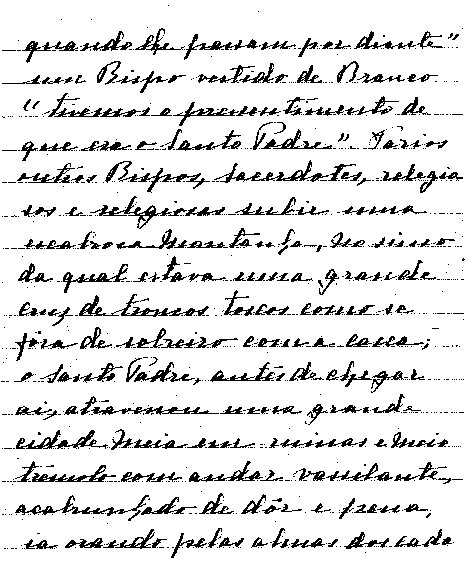 quando lhe passam por diante"
um Bispo vestido de Branco
"tivemos o pressentimento de
que era o Santo Padre". Varios
outros Bispos, sacerdotes, religio
sos e religiosas subir uma
escabrosa montanha, no simo
da qual estava uma grande
Cruz de troncos toscos como se
fôra de sobreiro com a casca;
o Santo Padre, antes de chegar
aí, atravessou uma grande
cidade meia em ruínas e meio
trémulo com andar vassilante,
acabrunhado de dôr e pena,
ia orando pelas almas dos cada